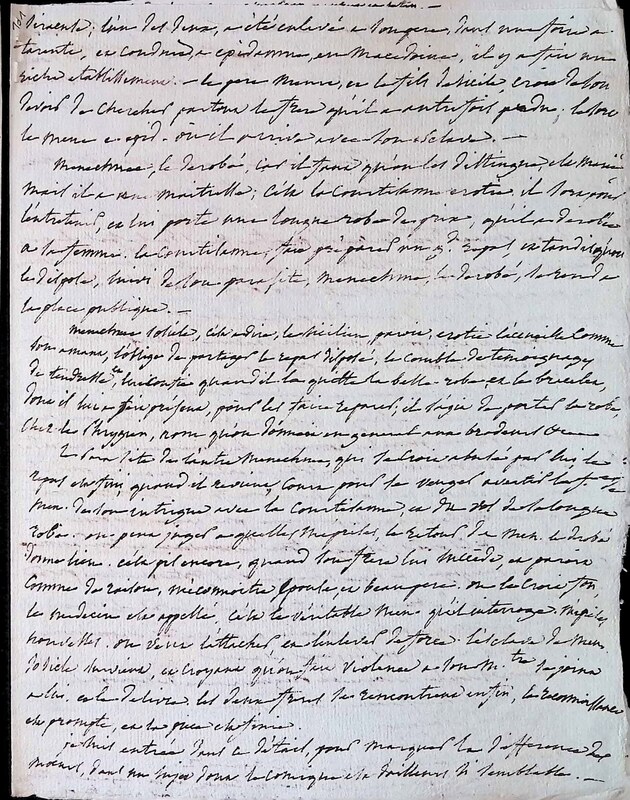 l'un des deux, a été enlevé a son pere, dans une foire a
tarente, et conduit a epidamne, en Macedoine, il y a fait un
riche etablissement. - le pere meurt, et le fils de sicile, croit de son
devoir de chercher partout le frere qu'il a autrefois perdu; le sort
le mene a epid. où il arrive avec son esclave. -
Menechme, le derobé, car il faut qu'on les distingue, est marié
mais il a une maitresse; c'est la Courtisanne erotie. il sort pour
l'entretenir, et lui porte une longue robe de prix, qu'il a derobée
a sa femme. la Courtisanne, fait preparer un gd. repas, et tandis qu'on
le dispose, suivi de son parasite, menechme, le derobé, se rend a
la place publique. -
menechme sosicle, c'est a dire, le sicilien paroit, erotie l'accueille comme
son amant, l'oblige de partager le repas disposé, le comble de temoignages
de tendresse, lui confie quand il la quitte la belle robe, et le bracelet,
dont il lui a fait présent, pour les faire reparer; il s'agit de porter la robe,
chez le Phrygien, nom qu'on donnoit en general aux brodeurs
le parasite de l'autre Menechme, qui se croit abusé par lui, le
repas etant fini, quand il revient, court pour se venger avertir la femme
de son intrigue avec la Courtisanne, et du vol de la longue
robe. on peut juger a quelles meprises, le retour de Men. le derobé
donne lieu. c'est pis encore, quand son frere lui succede, et paroit
comme de raison, méconnoitre epouse, et beaupere. on le croit fou,
le medecin est appellé, c'est le véritable Men. qu'il interroge. meprises
nouvelles. on veut l'attacher, et l'enlever de force. l'esclave de Men.
sosicle survient, et croyant qu'on fait violence a son Mtre. se joint
a lui, et le delivre. les deux freres se rencontrent enfin, la reconnoissance
est prompte, et la piece est finie.
je suis entrée dans ce détail, pour marquer la difference des
moeurs, dans un sujet dont le comique est d'ailleurs si semblable. -